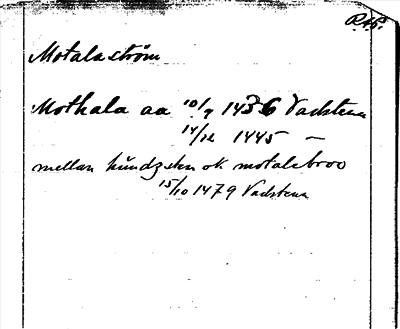 RAP.
Motala ström
Mothala aa 10/9 1436 Vadstena
14/12 1445 —
mellan hundzsten ok motalebroo
15/10 1479 Vadstena